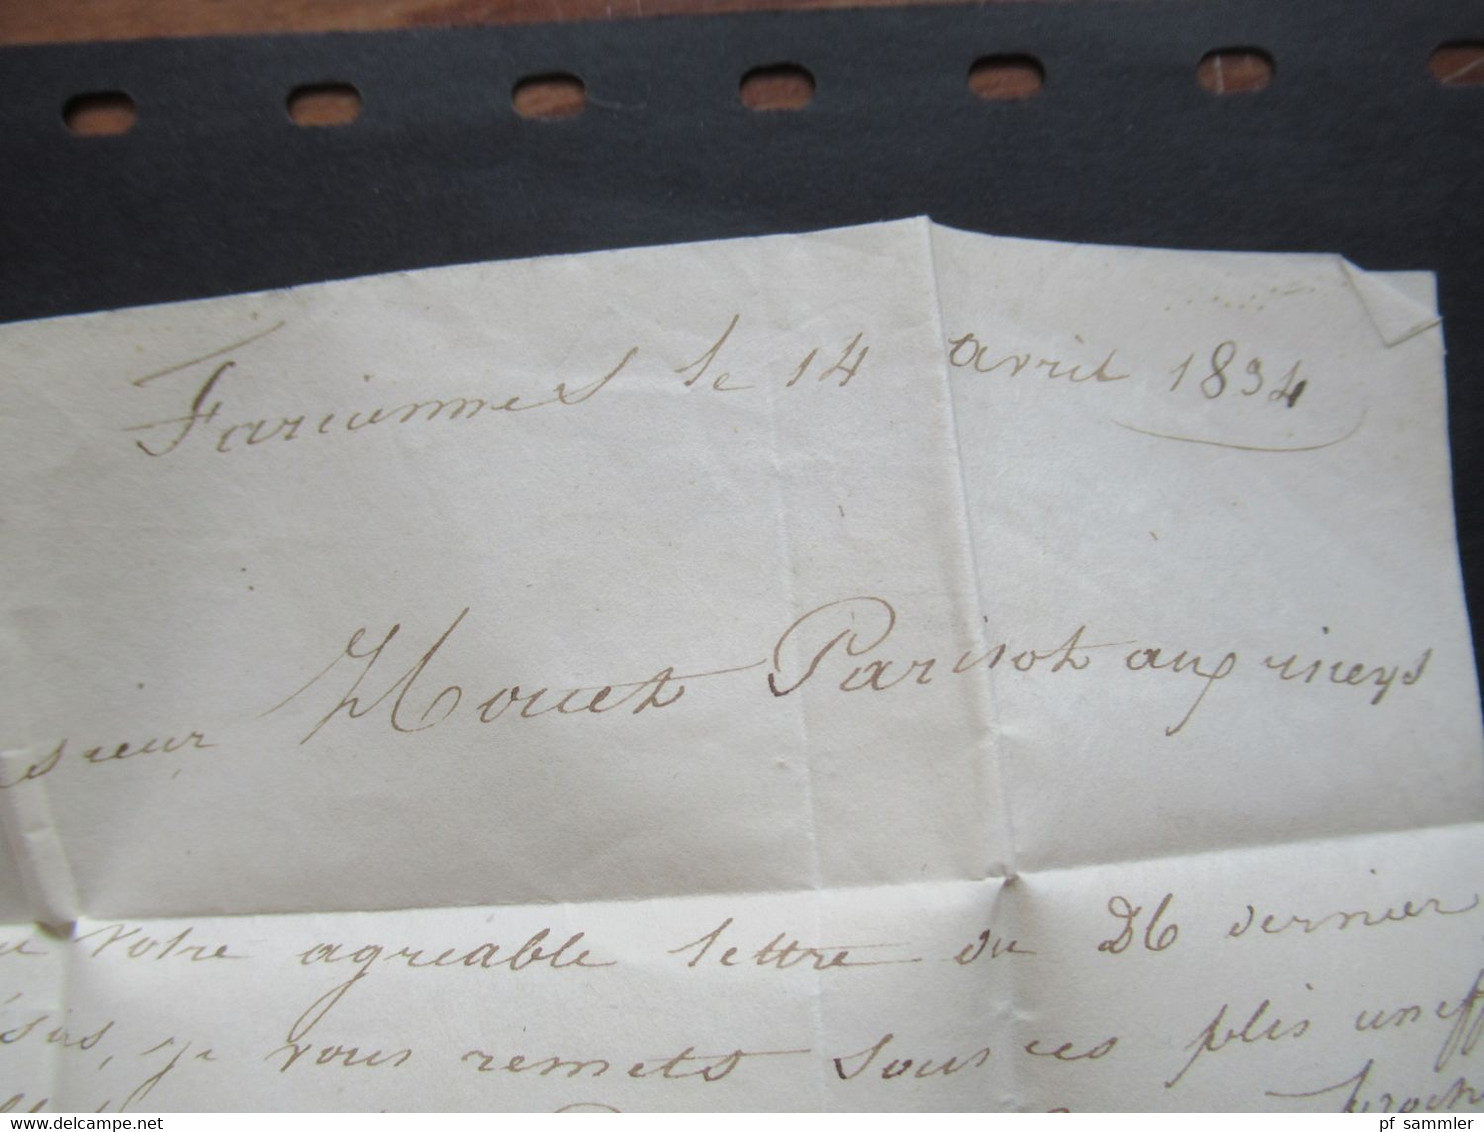 Farciennes le 14 avril 1834
sieur Houet Parisot aux rineys
votre agreable lettre du 26 dernier
je vous remets sous ces plis un eff
proch
pf_sammler